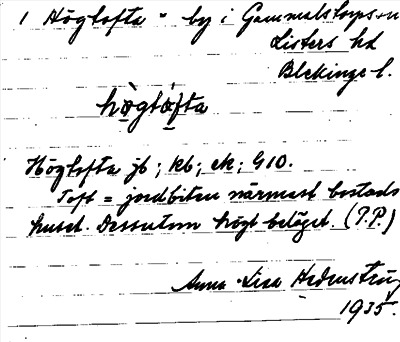 1 Högtofta - by i Gammalstorps sn
Listers hd
Blekinge l.
högtòfta
Högtofta jb; kb; ek; G10.
Toft = jordbiten närmast bostads
huset. Dessutom högt beläget. (P.P.)
Anna-Lisa Hedenstrug
1935.